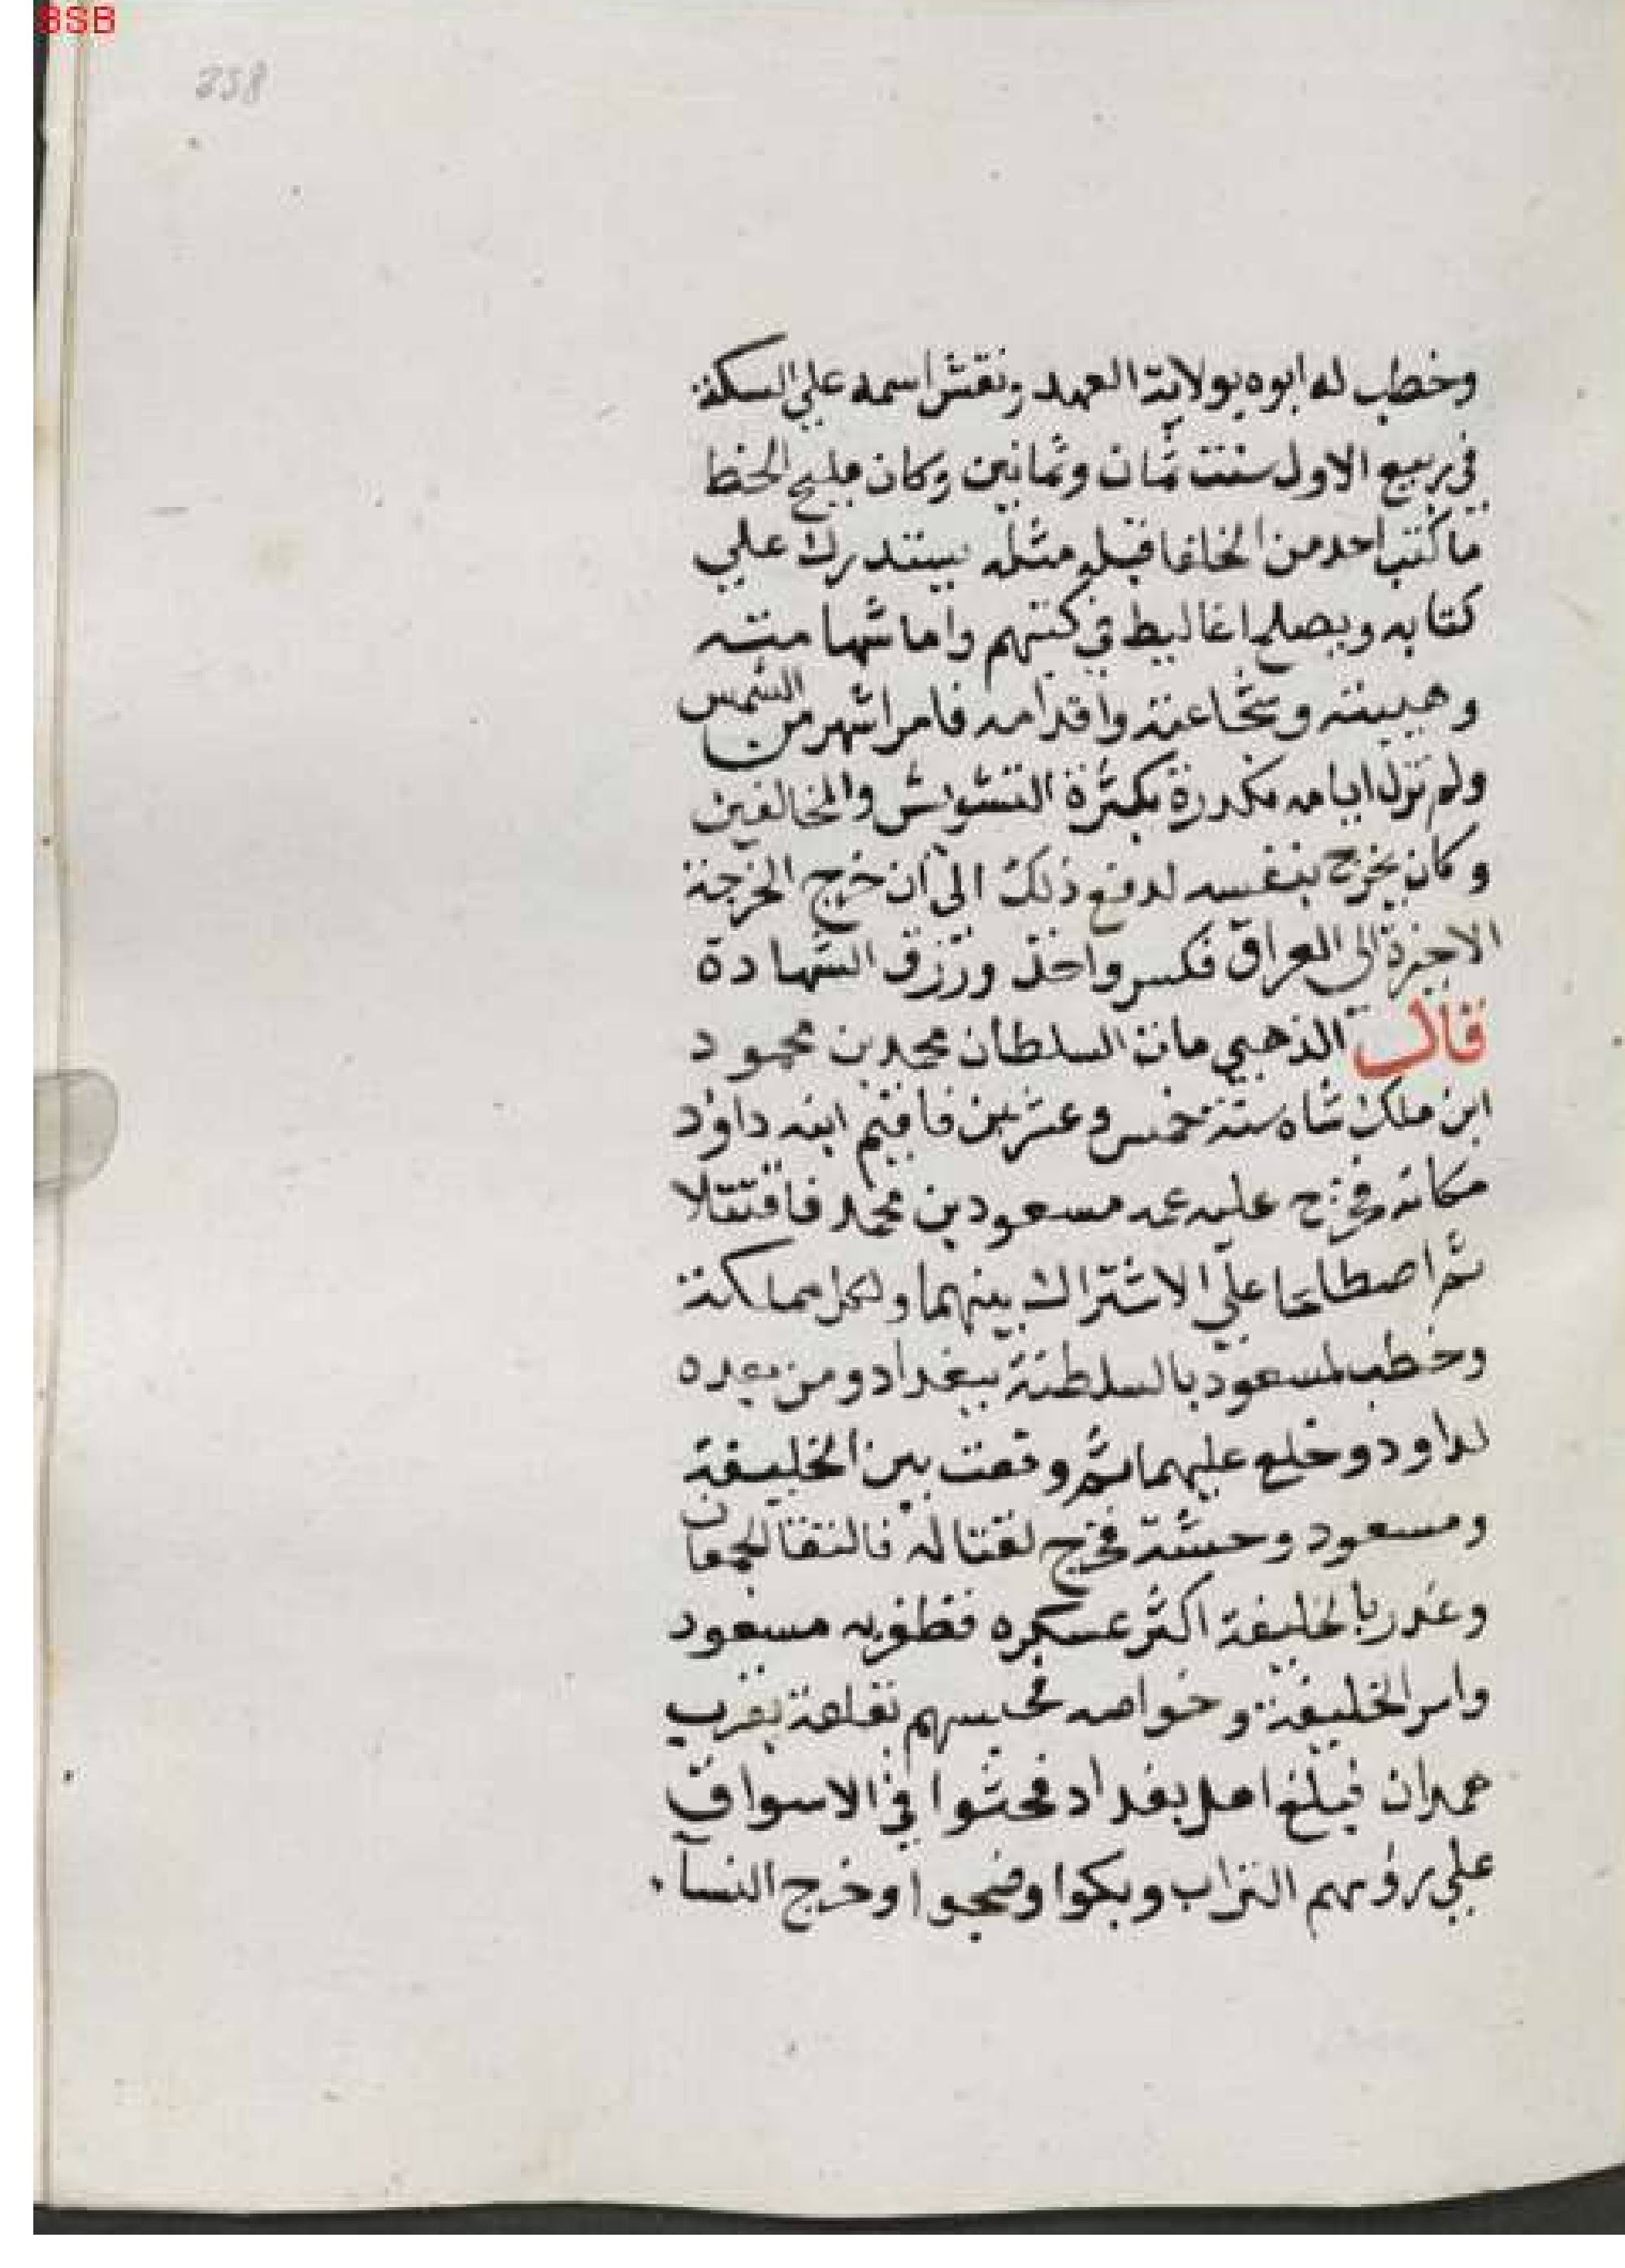 BSB
358
وخطب له ابوه بولاية العهد ونقش اسمه علي السكة
في ربيع الاول سنت ثمان وثمانين وكان مليح الخط
ما كتب احد من الخلفا قبله مثله يستدرك علي
كتابه ويصلح اغاليط في كتبهم واما شهامته
وهيبته وشجاعته واقدامه فامر اشهر من الشمس
ولم تزل ايامه مكدرة بكثرة التشويش والمخالفين
وكان يخرج بنفسه لدفع ذلك الى ان خرج الخرجة
الاخيرة الى العراق فكسر واخذ ورزق الشهادة
قال الذهبي مات السلطان محمد بن محمود
ابن ملك شاه ستة خمس وعشرين فاقيم ابنه داود
مكانه فخرج عليه عمه مسعود بن محمد فاقتتلا
ثم اصطلحا علي الاشتراك بينهما ولكل مملكة
وخطب لمسعود بالسلطنة ببغداد ومن بعده
لداود وخلع عليهما ثم وقعت بين الخليفة
ومسعود وحشة فخرج لقتاله فالتقا الجمعان
وغدر بالخليفة اكثر عسكره فظفر به مسعود
واسر الخليفة وخواصه فحبسهم بقلعة بقرب
همدان فبلغ اهل بغداد فحثوا في الاسواق
علي رؤسهم التراب وبكوا وضجوا وخرج النسآ